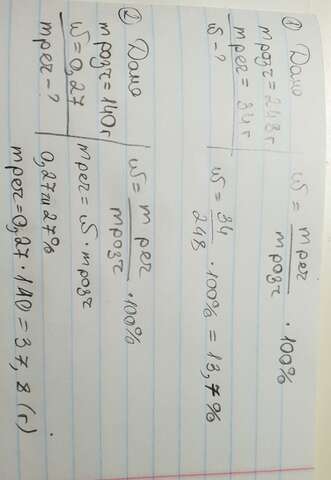 ① Дано
mрозг = 248г
mреч = 34г
ω - ?
ω = mреч / mрозг · 100%
ω = 34 / 248 · 100% = 13,7%
② Дано
mрозг = 140г
ω = 0,27
mреч - ?
ω = mреч / mрозг · 100%
mреч = ω · mрозг
0,27 = 27%
mреч = 0,27 · 140 = 37,8 (г)